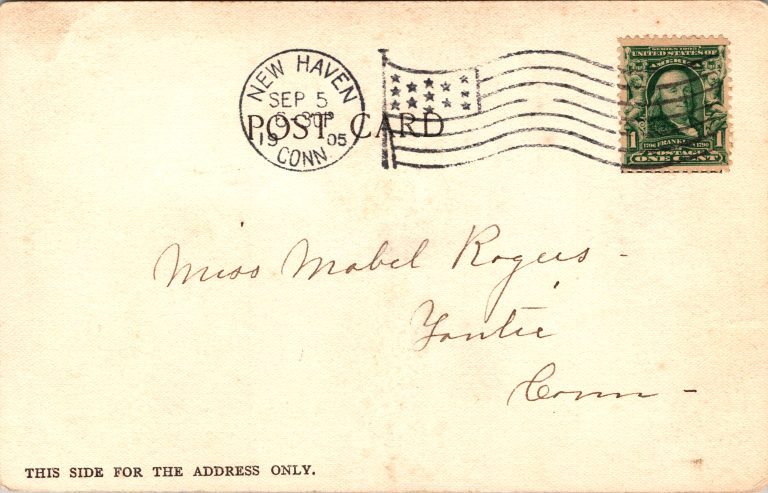 NEW HAVEN
SEP 5
6-30P
1905
CONN.
POST CARD
SERIES 1902
UNITED STATES OF
AMERICA
1 FRANKLIN 1
1706 1790
POSTAGE
ONE CENT
Miss Mabel Rogers -
Yantic
Conn -
THIS SIDE FOR THE ADDRESS ONLY.